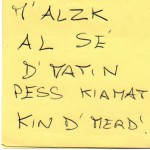 M' ALZK
AL SÉ
D' MATIN
PESS KIAMAT
KIN D' MERD'.